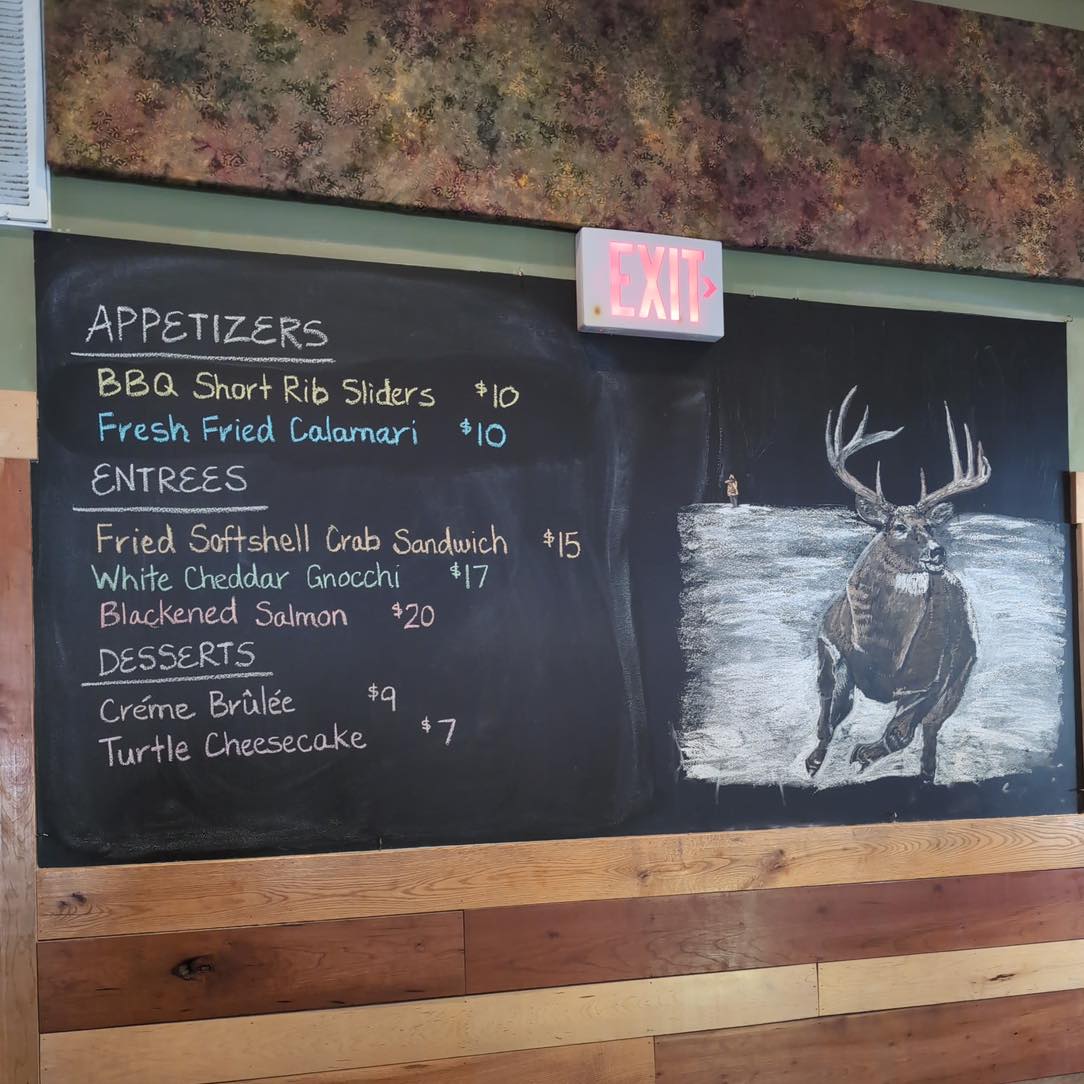 EXIT
APPETIZERS
BBQ Short Rib Sliders $10
Fresh Fried Calamari $10
ENTREES
Fried Softshell Crab Sandwich $15
White Cheddar Gnocchi $17
Blackened Salmon $20
DESSERTS
Créme Brûlée $9
Turtle Cheesecake $7